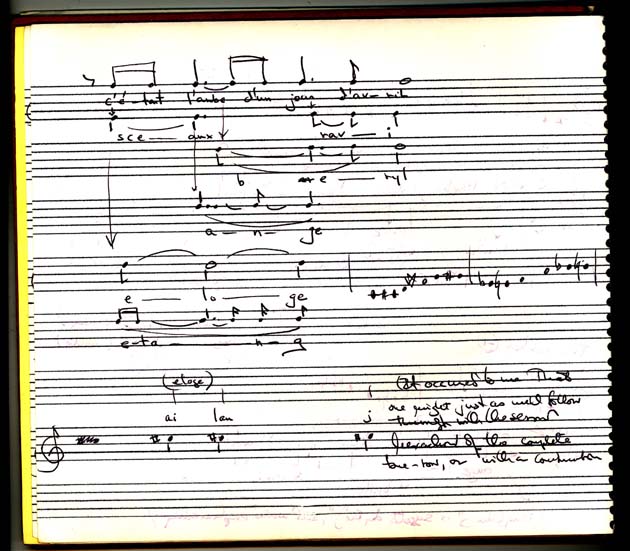 c'é-tait l'aube d'un jour d'av-ril
sce — aux rav — i
b — e — ryl
a — n — ge
e — lo — ge
e-ta — n-g
(eloge)
ai lau j
(It occurred to me that
one might just as well follow
through with the serial
of the complete
tone-row, or with a construction